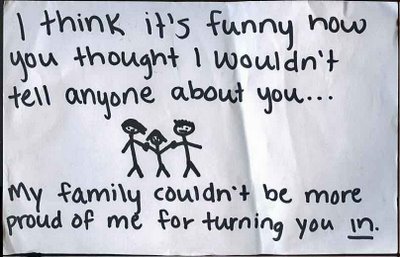 I think it's funny how
you thought I wouldn't
tell anyone about you...
My family couldn't be more
proud of me for turning you in.